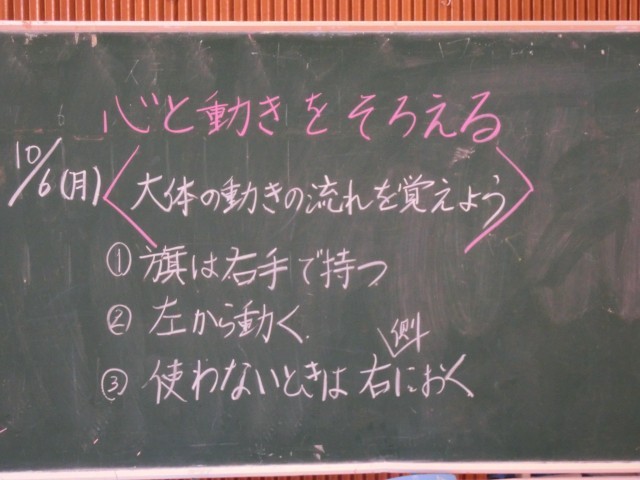 心と動きをそろえる
10/6(月)
〈大体の動きの流れを覚えよう〉
① 旗は右手で持つ
② 左から動く.
③ 使わないときは右側におく